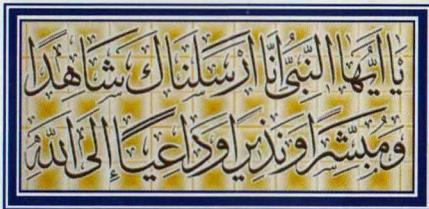 يَا اَيُّهَا النَّبِىُّ اِنَّا اَرْسَلْنَاكَ شَاهِدًا
وَمُبَشِّرًا وَنَذِيرًا وَدَاعِيًا إِلَى اللّٰهِ